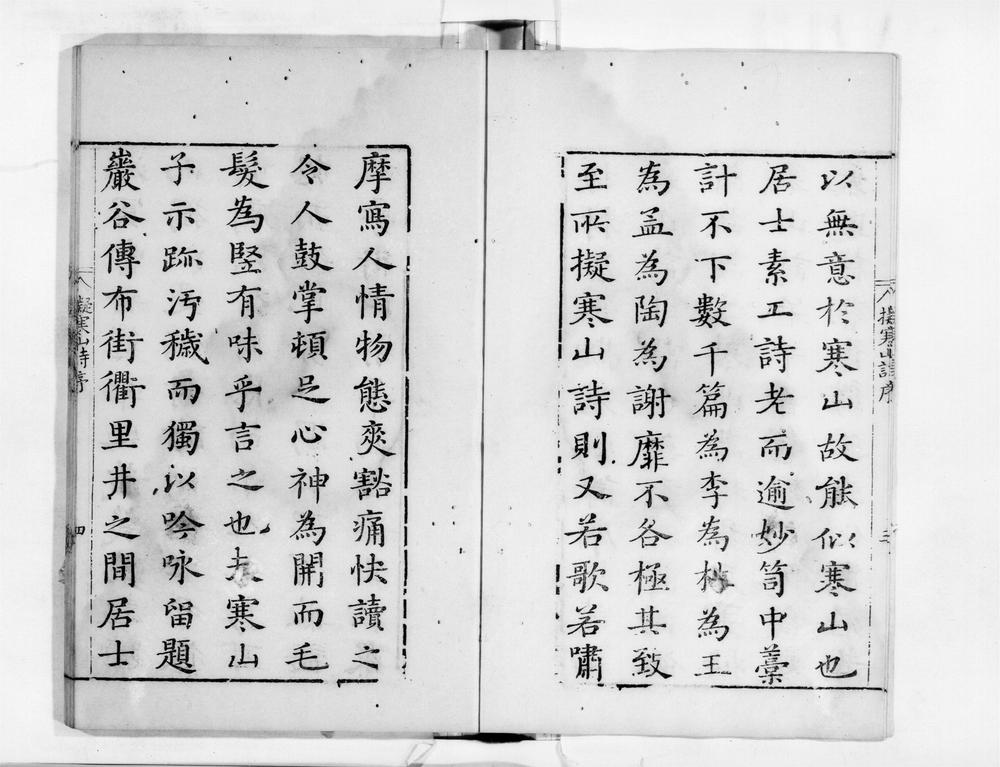 以無意於寒山故能似寒山也
居士素工詩老而逾妙笥中藁
計不下數千篇為李為杜為王
為孟為陶為謝靡不各極其致
至所擬寒山詩則又若歌若嘯
擬寒山詩序
三
摩寫人情物態爽豁痛快讀之
令人鼓掌頓足心神為開而毛
髮為豎有味乎言之也夫寒山
子示跡汚穢而獨以吟咏留題
巖谷傳布街衢里井之間居士
擬寒山詩序
四